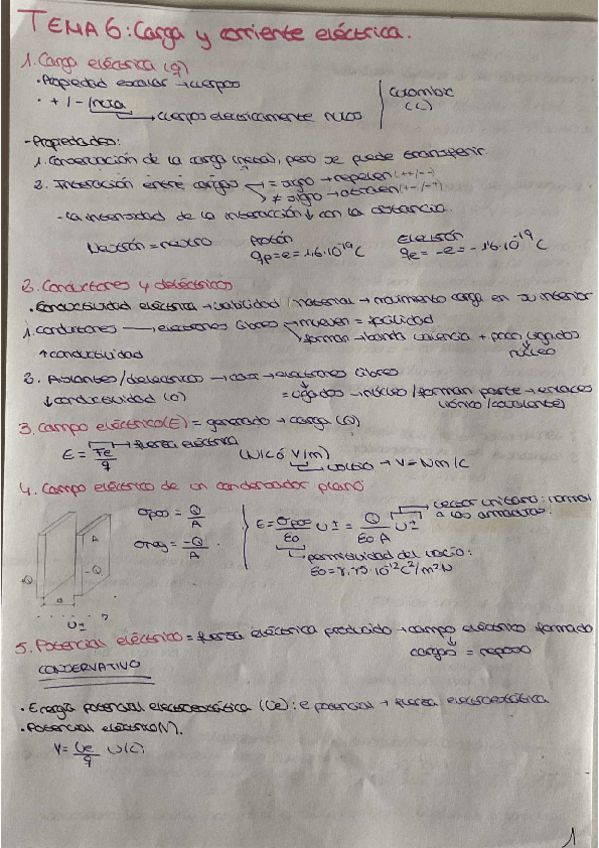 TEMA 6: Carga y corriente eléctrica.
1. Carga eléctrica (q)
· Propiedad escalar → cuerpos
· + / - / nula
→ cuerpos eléctricamente neutros
Coulombio
(C)
- Propiedades:
1. Conservación de la carga (neta), pero se puede transferir.
2. Interacción entre cargas
= signo → repelen (++/--)
≠ signo → atraen (+-/-+)
- La intensidad de la interacción ↓ con la distancia.
Neutrón = neutro
Protón
qp = e = 1,6·10⁻¹⁹ C
Electrón
qe = -e = -1,6·10⁻¹⁹ C
2. Conductores y dieléctricos
· Conductividad eléctrica → habilidad / material → movimiento carga en su interior
1. conductores → electrones libres
mueven = facilidad
forman → banda valencia + poco ligados
núcleo
↑ conductividad
2. Aislantes / dieléctricos → electrones libres
↓ conductividad (0)
= ligados → núcleo / forman parte → enlaces
(iónico / covalente)
3. Campo eléctrico (E) = generado → carga (Q)
→ fuerza eléctrica
E = Fe / q
(N/C ó V/m)
→ voltio → V = Nm/C
4. Campo eléctrico de un condensador plano
σpos = Q / A
σneg = -Q / A
E = σpos / ε0 u⊥ = Q / ε0 A u⊥
→ vector unitario: normal
a las armaduras.
→ permitividad del vacío:
A
-Q
Q
u⊥
5. Potencial eléctrico = fuerza eléctrica producido → campo eléctrico formado
cargas = reposo
CONSERVATIVO
· Energía potencial electroestática (Ue): e potencial → fuerza electroestática
· Potencial eléctrico (V).
V = Ue / q (J/C)
1